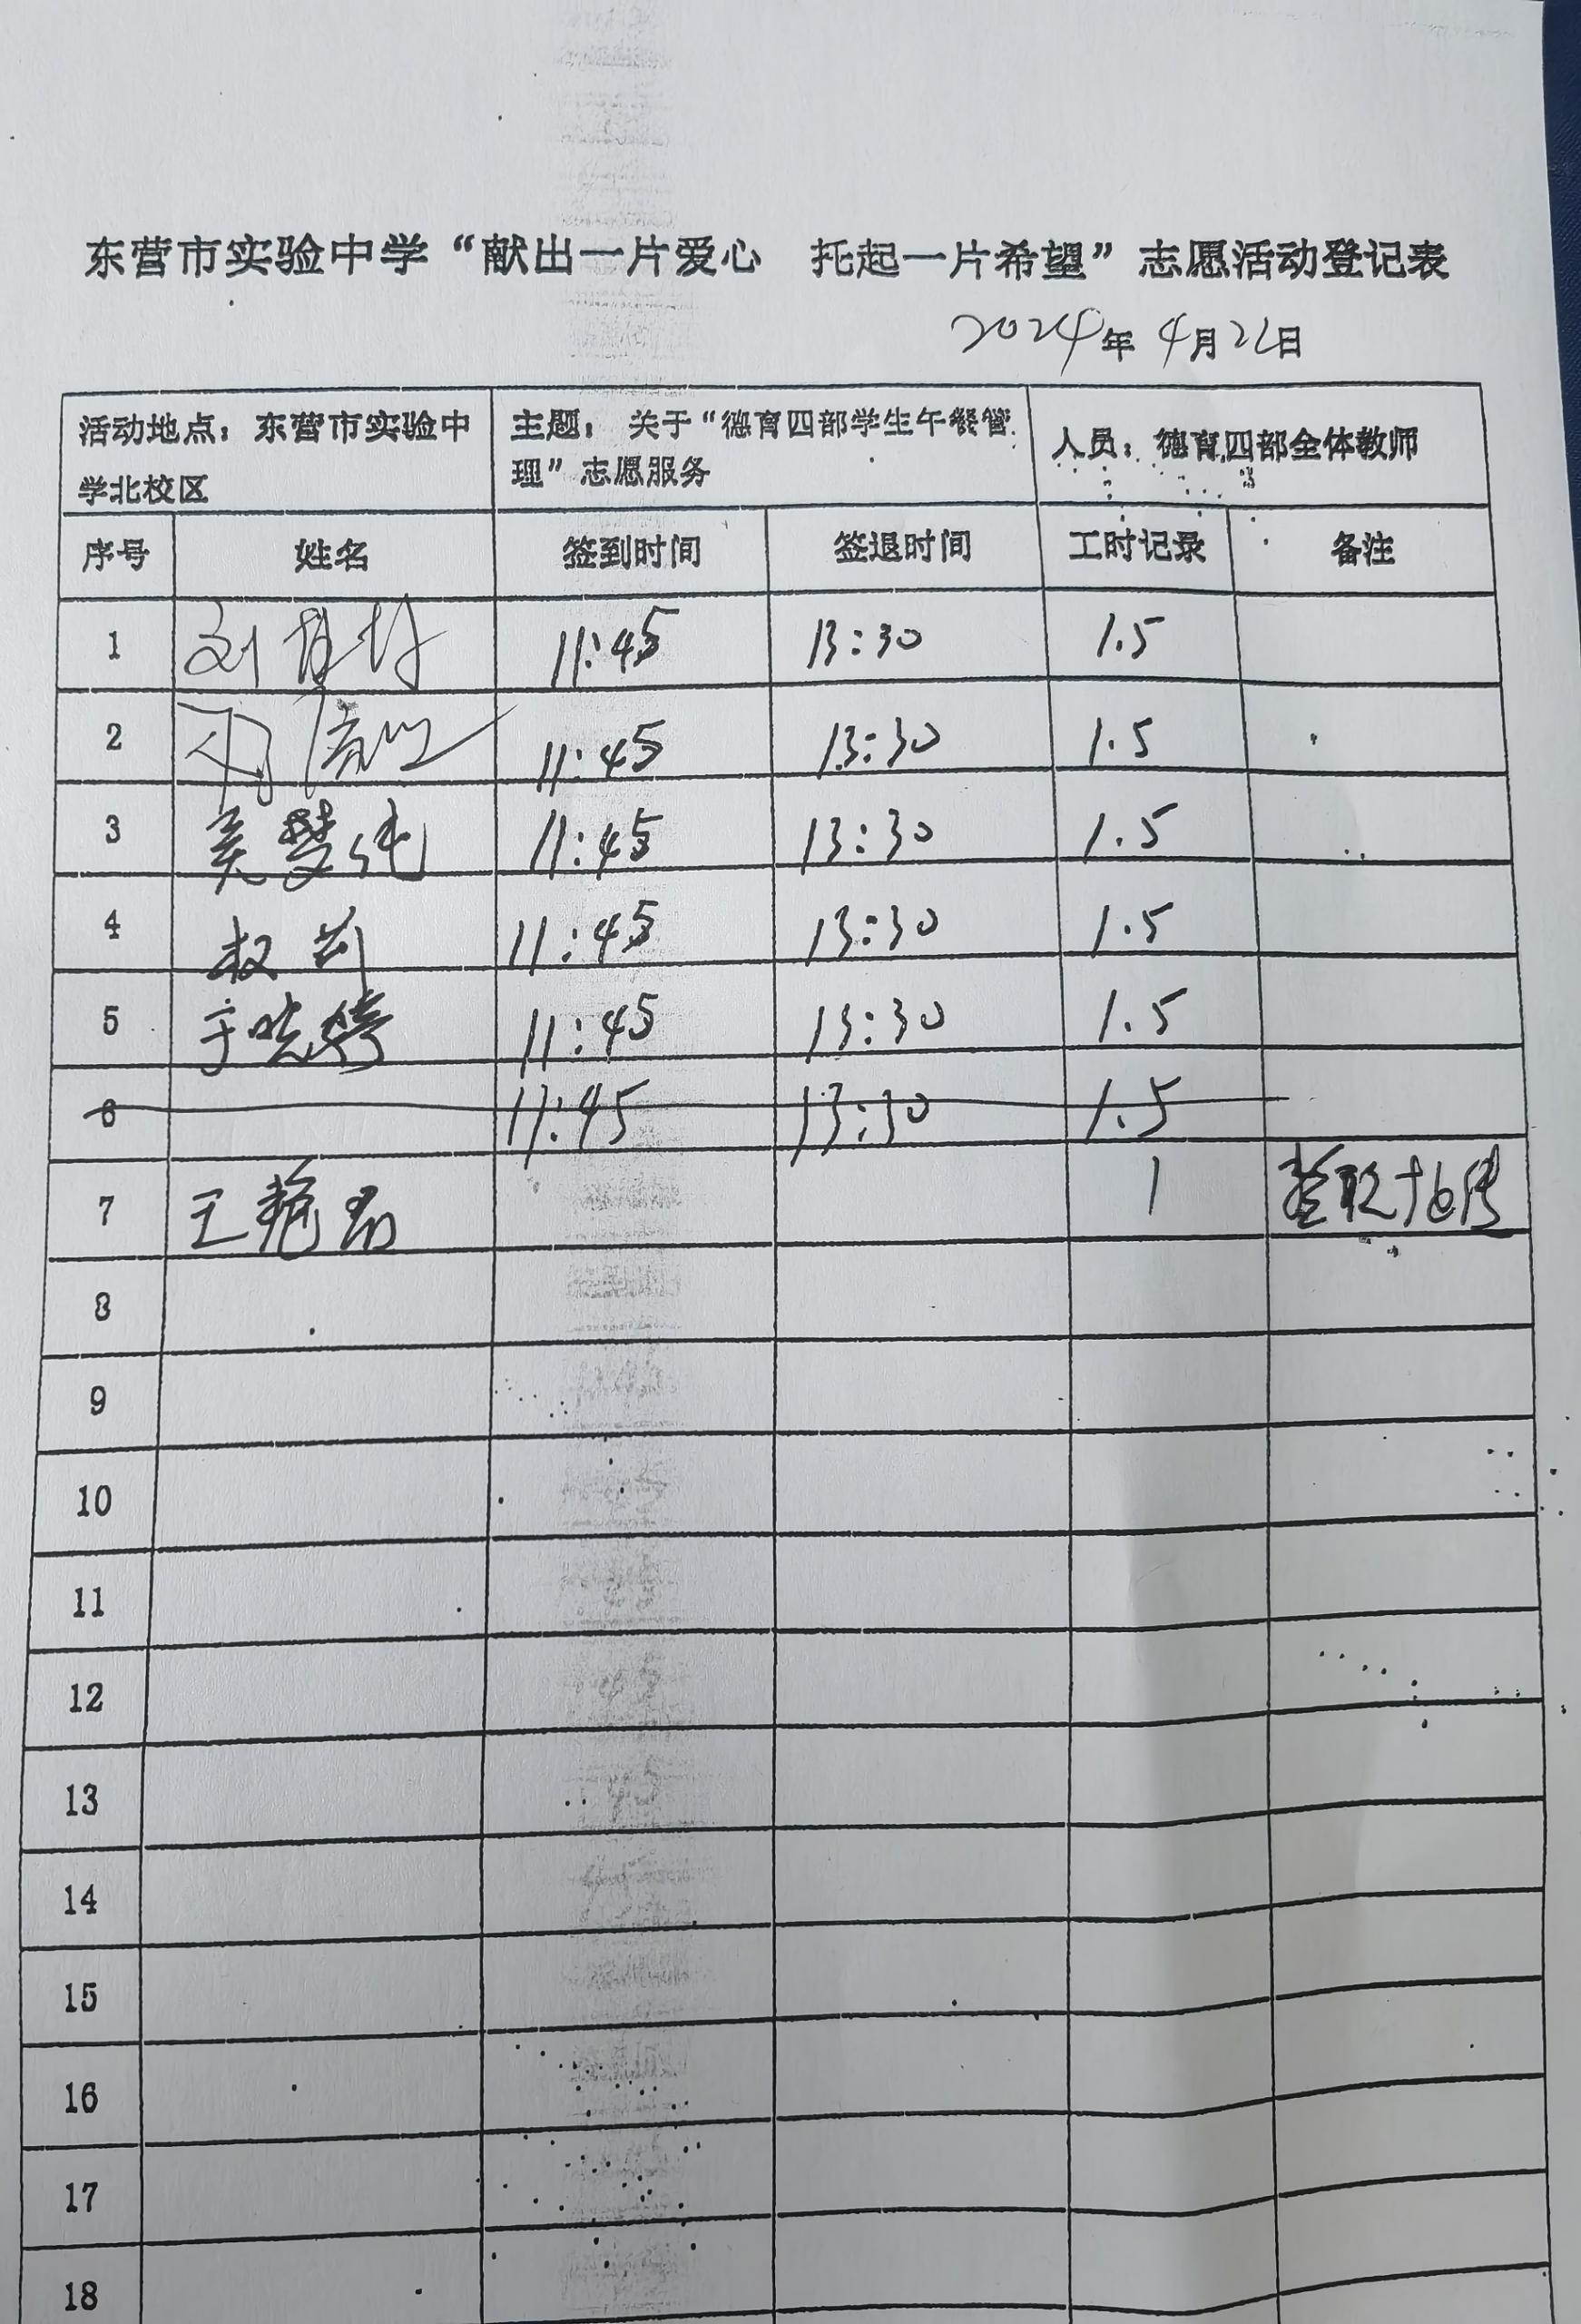 东营市实验中学“献出一片爱心 托起一片希望”志愿活动登记表
2024年4月22日
活动地点：东营市实验中学北校区 主题：关于“德育四部学生午餐管理”志愿服务 人员：德育四部全体教师
序号 姓名 签到时间 签退时间 工时记录 备注
1 刘 11:45 13:30 1.5
2 11:45 13:30 1.5
3 姜慧纯 11:45 13:30 1.5
4 权 11:45 13:30 1.5
5 于晓婷 11:45 13:30 1.5
6 11:45 13:30 1.5
7 王艳君 1
8
9
10
11
12
13
14
15
16
17
18